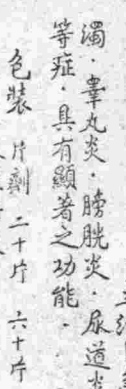 濁·睾丸炎·膀胱炎·尿道炎
等症·具有顯著之功能·
包裝 片劑 二十片 六十片